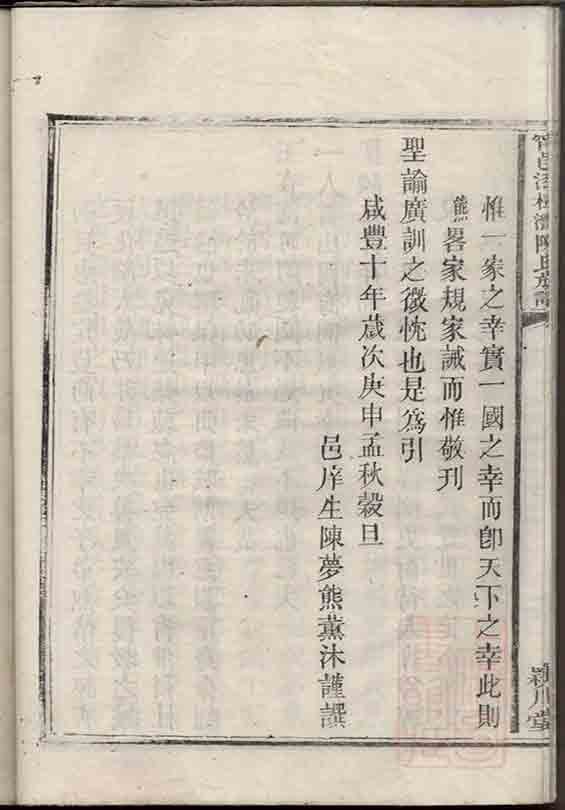 惟一家之幸實一國之幸而卽天下之幸此則
熊畧家規家誡而惟敬刊
聖諭廣訓之微忱也是爲引
咸豐十年歲次庚申孟秋穀旦
邑庠生陳夢熊薰沐謹譔
陳氏族譜
潁川堂